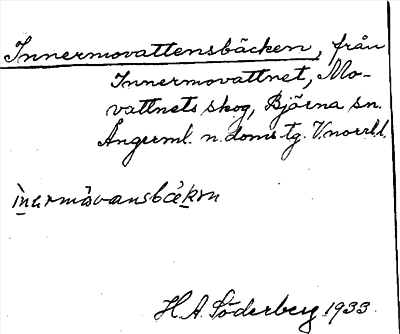 Innermovattensbäcken, från
Innermovattnet, Mo-
vattnets skog, Björna sn.
Ångerml. n. doms tg. V.norrl.l.
ìnarmå̀vansbä̀kɐn
H. A. Söderberg 1933.